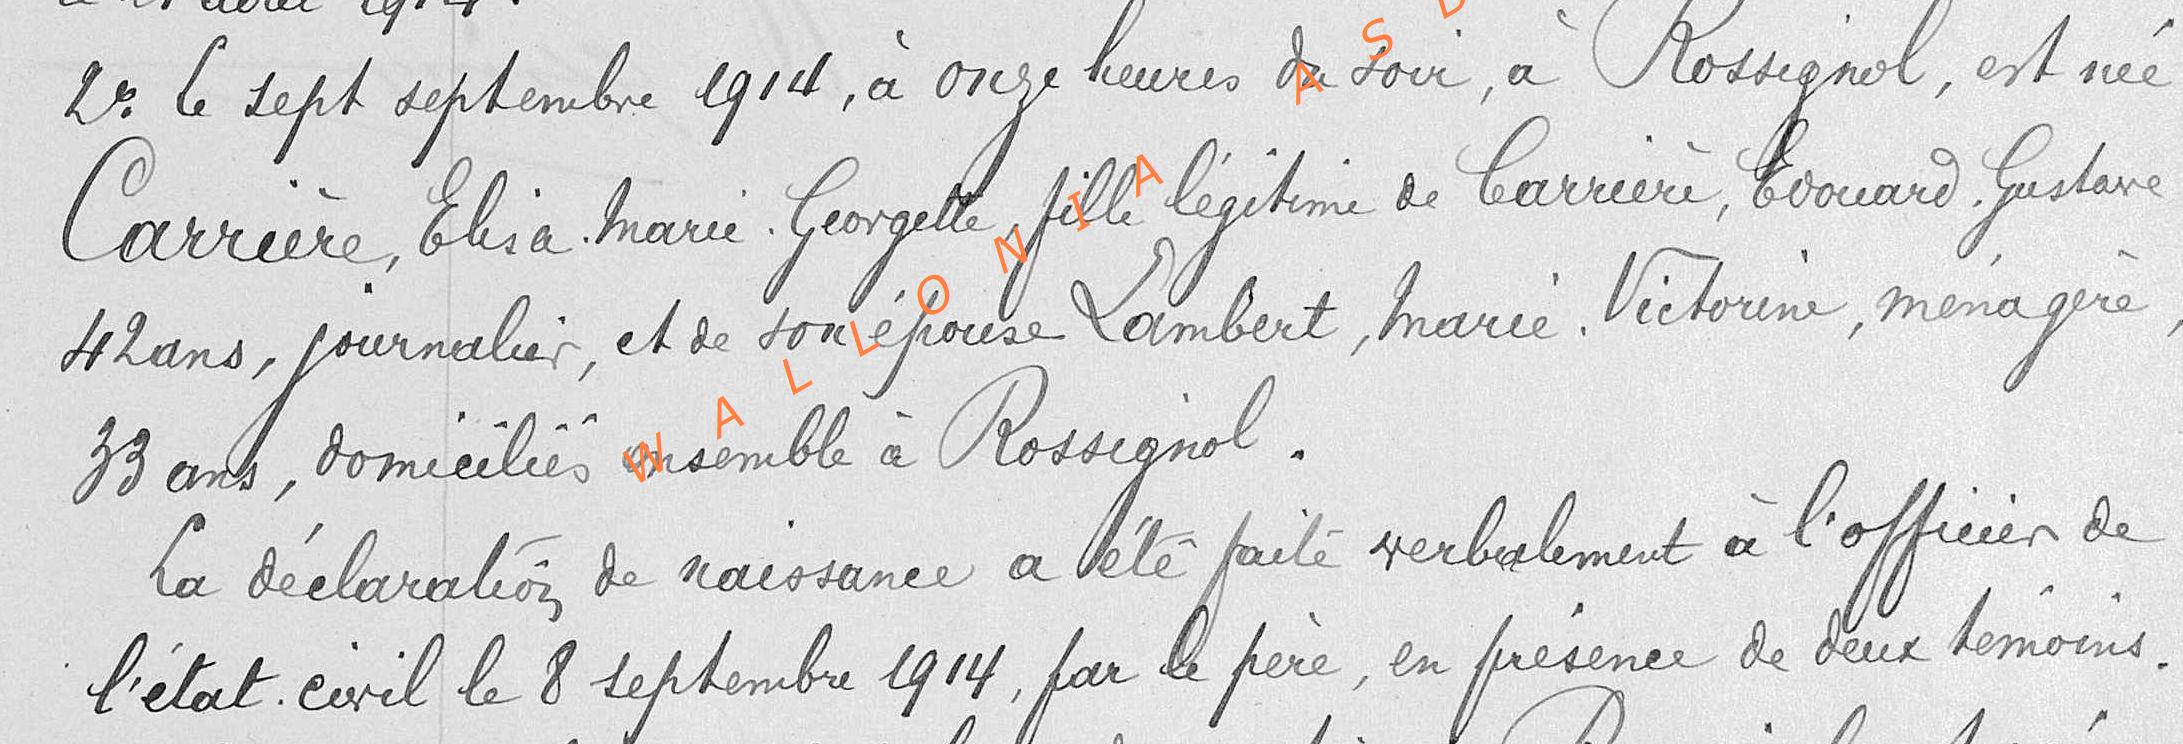 2° le sept septembre 1914, à onze heures du soir, à Rossignol, est née
Carrière, Elisa. Marie. Georgette, fille légitime de Carrière, Edouard. Gustave
42 ans, journalier, et de son épouse Lambert, Marie. Victorine, ménagère,
33 ans, domiciliés ensemble à Rossignol.
La déclaration de naissance a été faite verbalement à l'officier de
l'état.civil le 8 septembre 1914, par le père, en présence de deux témoins.
WALLONIA ASD